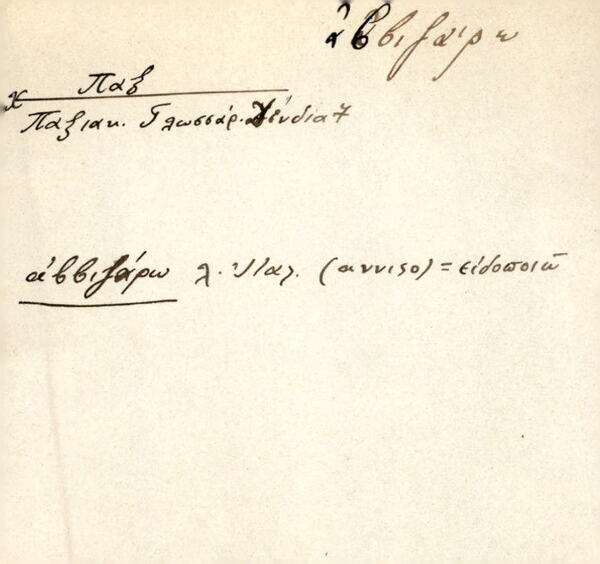 ἀββιζάρω
Παξ
Παξιακ. Γλωσσάρ. Χένδια 7
ἀββιζάρω λ. Ἰταλ. (avviso) = εἰδοποιῶ